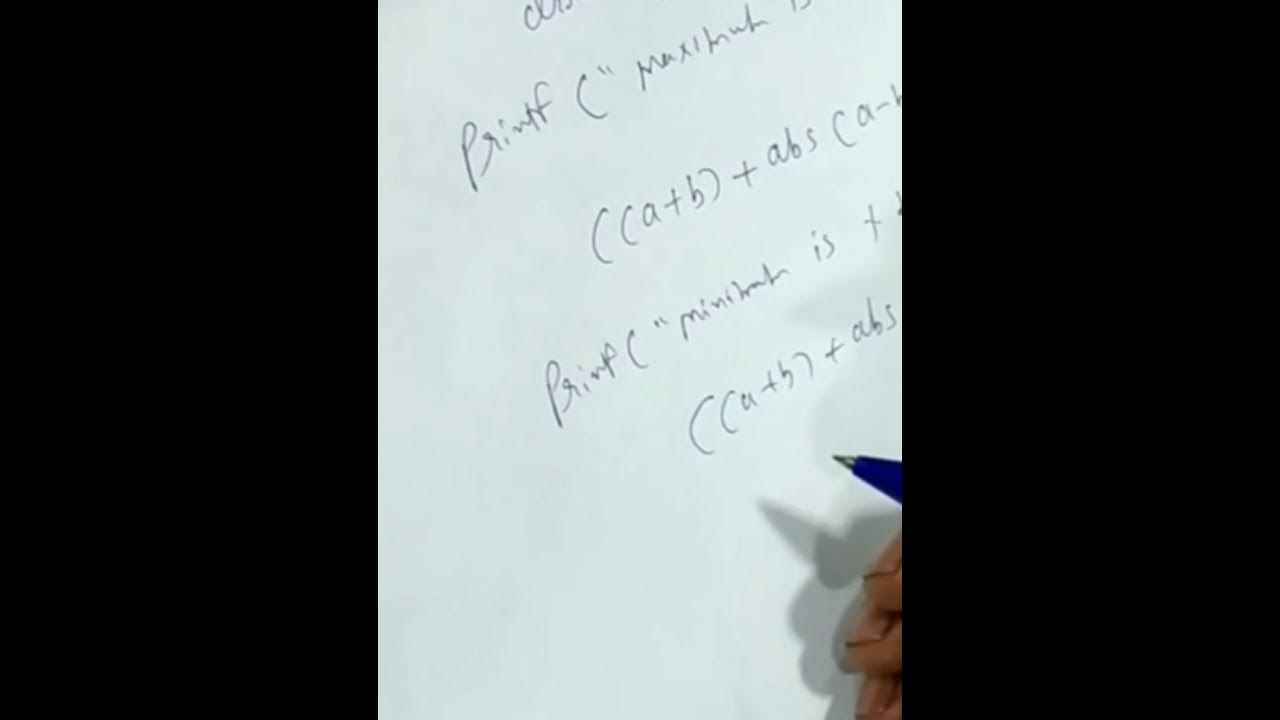 Printf (" maximum is
((a+b) + abs (a-b
Print (" minimum is +
((a+b) + abs